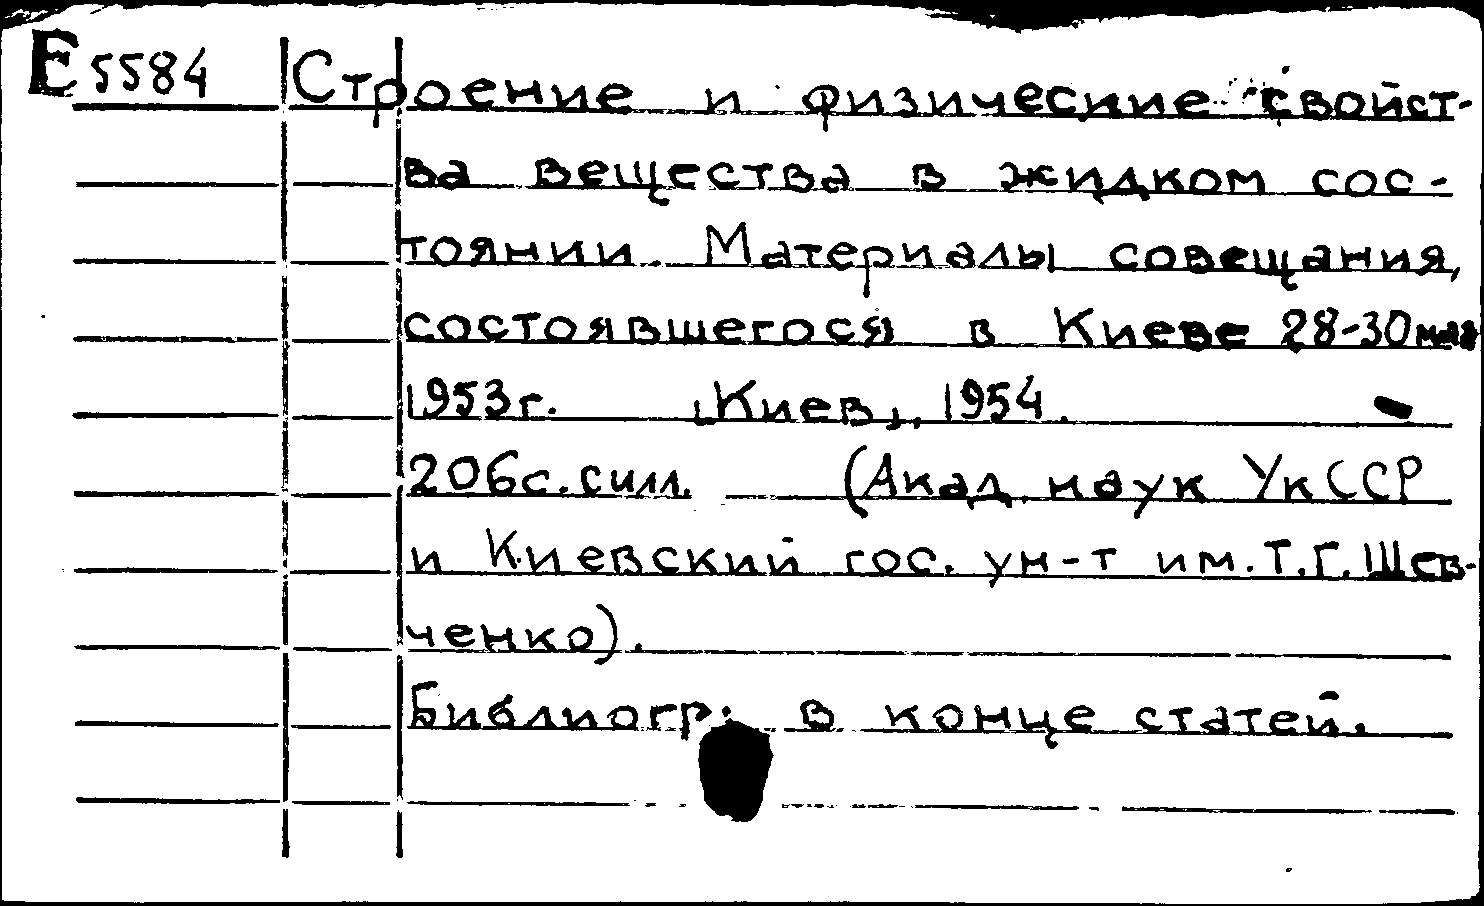 Е 5584 Строение и физические свойст-
ва вещества в жидком сос-
тоянии. Материалы совещания,
состоявшегося в Киеве 28-30 мая
1953 г. [Киев], 1954.
206 с. с илл. (Акад. наук УкССР
и Киевский гос. ун-т им. Т.Г. Шев-
ченко).
Библиогр: в конце статей.